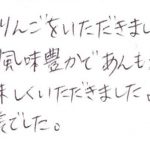 りんごをいただきまし
風味豊かであんも
味しくいただきました。
でした。